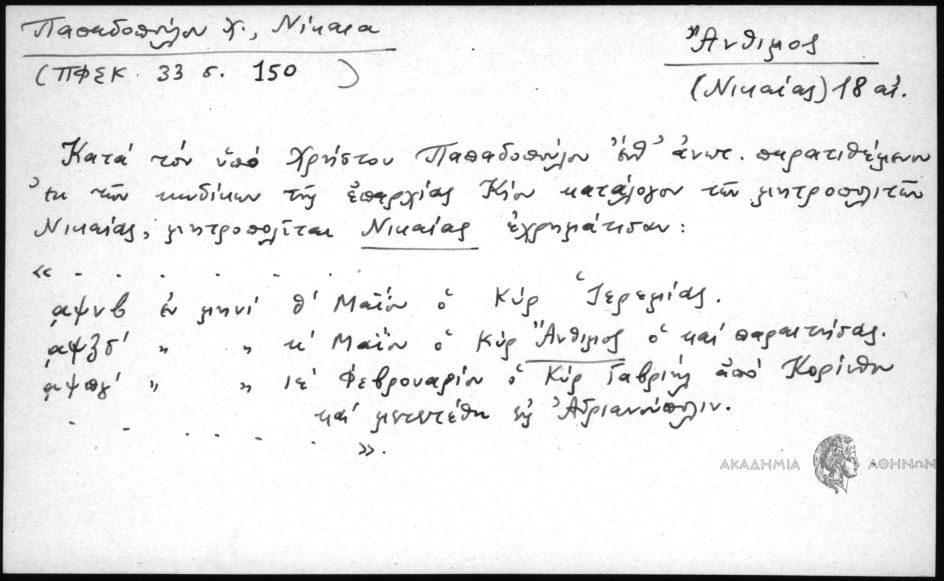 Παπαδοπούλου Χ., Νίκαια
(ΠΦΣΚ 33 σ. 150)
Ἄνθιμος
(Νικαίας) 18 αἰ.
Κατά τόν ὑπό Χρήστου Παπαδοπούλου ἐνθ' ἀνωτ. παρατιθέμενον
ἐκ τῶν κωδίκων τῆς ἐπαρχίας Κίου κατάλογον τῶν μητροπολιτῶν
Νικαίας, μητροπολῖται Νικαίας ἐχρημάτισαν:
« . . . . . .
͵αψνβ ἐν μηνί θ' Μαΐου ὁ Κύρ Ἰερεμίας.
͵αψξστ' " " κ' Μαΐου ὁ Κύρ Ἄνθιμος ὁ καί παραιτήσας.
͵αψπγ' " " ιε' Φεβρουαρίου ὁ Κύρ Γαβριήλ ἀπό Κορίνθου
καί μετετέθη εἰς Ἀδριανούπολιν.
. . . . . . ».
ΑΚΑΔΗΜΙΑ ΑΘΗΝΩΝ